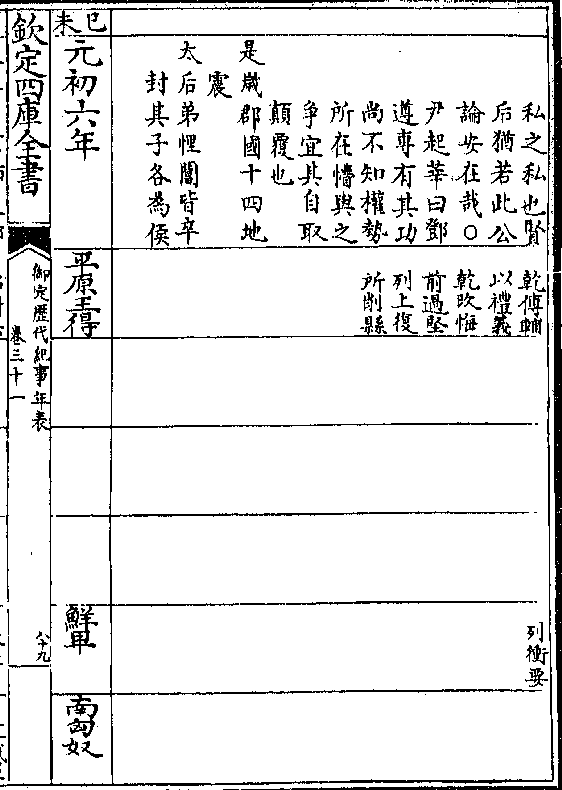 私之私也賢
后猶若此公
論安在哉○
尹起莘曰鄧
遵專有其功
尚不知權勢
所在懵與之
争宜其自取
顛覆也
是歲郡國十四地
震
太后弟悝閶皆卒
封其子各為侯
乾傅輔
以禮義
乾改悔
前過堅
列上復
所削縣
列衝要
己未
元初六年
平原王得
鮮卑
南匈奴
欽定四庫全書
御定歴代紀事年表
卷三十一
八十九